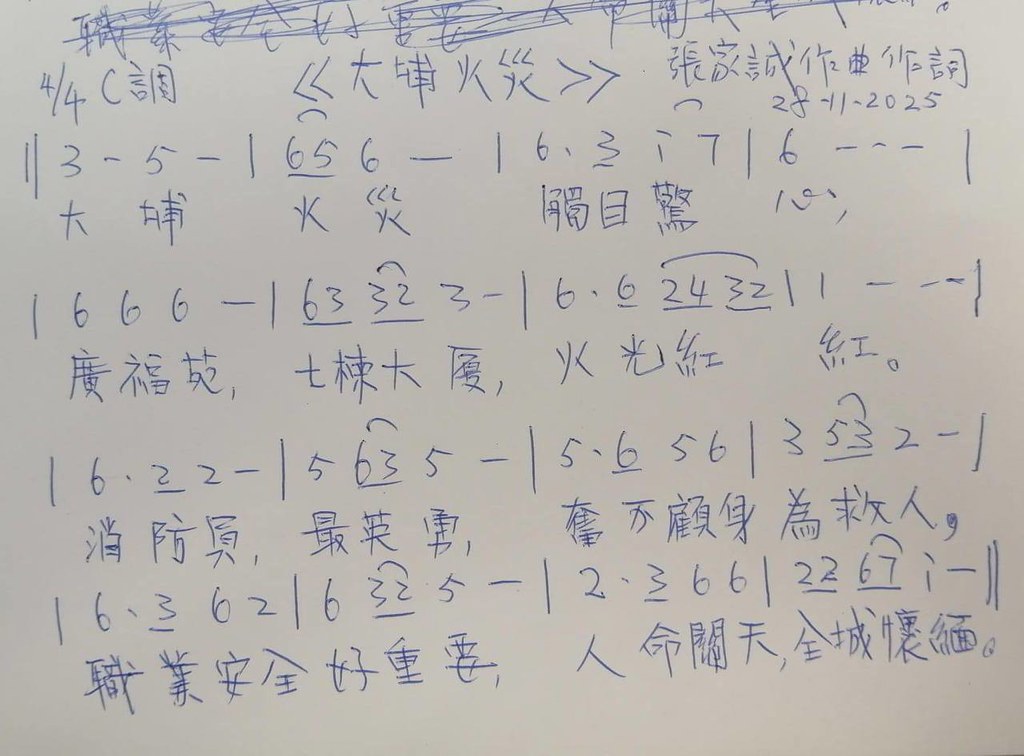 職業安全好重要
4/4 C調 《大埔火災》 張家誠作曲作詞
28-11-2025
‖ 3 - 5 - | 65 6 — | 6. 3 i 7 | 6 - - - |
大 埔 火 災 觸目驚 心,
| 6 6 6 — | 63 32 3 - | 6 . 6 24 32 | 1 - - - |
廣福苑, 七棟大廈, 火光紅 紅。
| 6 . 2 2 - | 5 63 5 - | 5 . 6 5 6 | 3 53 2 - |
消防員, 最英勇, 奮不顧身為救人,
| 6 . 3 6 2 | 6 32 5 - | 2 . 3 6 6 | 22 67 i - ‖
職業安全好重要, 人命關天,全城懷緬。